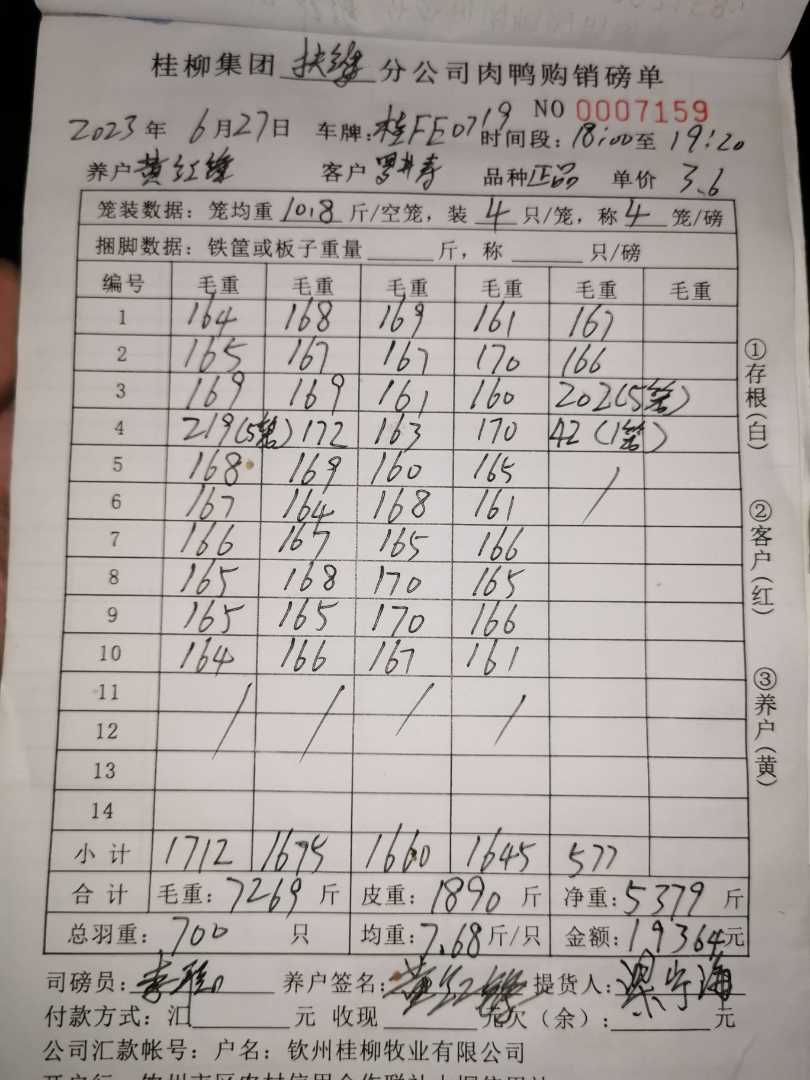 桂柳集团 扶绥 分公司肉鸭购销磅单
NO 0007159
2023 年 6 月 27 日 车牌: 桂FE0719 时间段: 18:00 至 19:20
养户 黄红锋 客户 品种 正品 单价 3.6
笼装数据: 笼均重 10.8 斤/空笼, 装 4 只/笼, 称 4 笼/磅
捆脚数据: 铁筐或板子重量 斤, 称 只/磅
编号 毛重 毛重 毛重 毛重 毛重 毛重
1 164 168 169 161 167
2 165 167 167 170 166
3 169 169 161 160 202(5笼)
4 219(5笼) 172 163 170 42(1笼)
5 168 169 160 165 /
6 167 164 168 161
7 166 167 165 166
8 165 168 170 165
9 165 165 170 166
10 164 166 167 161
11 / / / /
12
13
14
小计 1712 1675 1660 1645 577
合计 毛重: 7269 斤 皮重: 1890 斤 净重: 5379 斤
总羽重: 700 只 均重: 7.68 斤/只 金额: 19364 元
司磅员: 养户签名: 黄红锋 提货人:
付款方式: 汇 元 收现 元欠(余): 元
公司汇款帐号: 户名: 钦州桂柳牧业有限公司
①存根(白)
②客户(红)
③养户(黄)